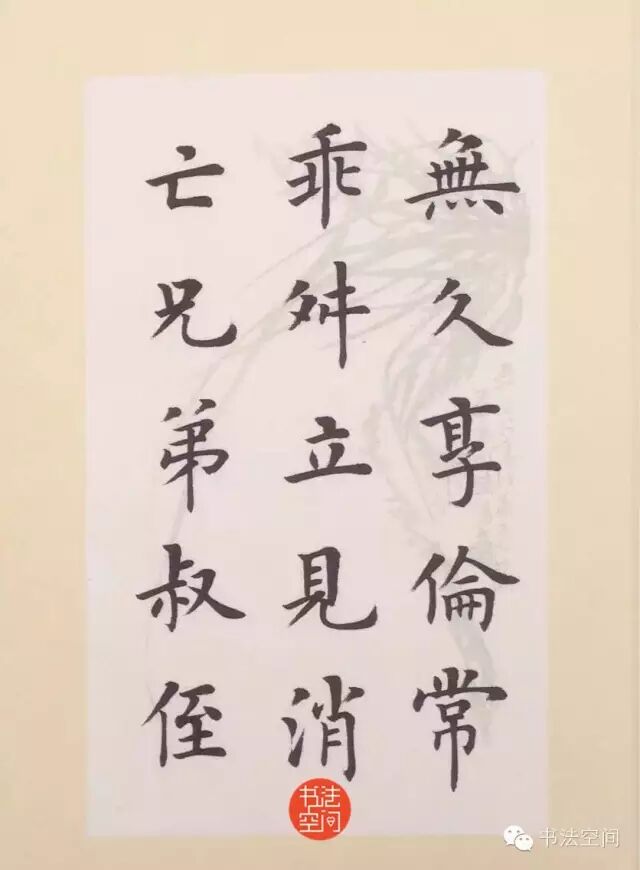 無久享倫常
乖舛立見消
亡兄弟叔侄
书法空间
书法空间